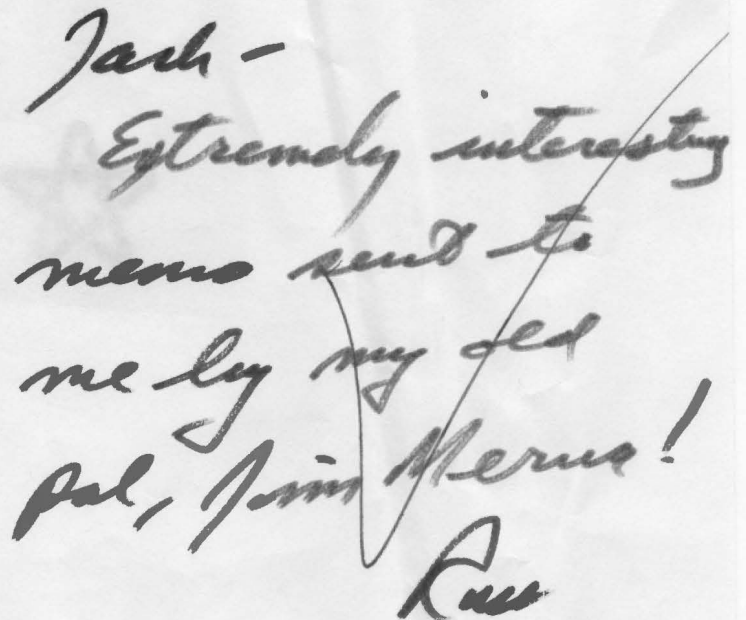 Jack -
Extremely interesting
memo sent to
me by my old
pal, Jim Merna!
Russ